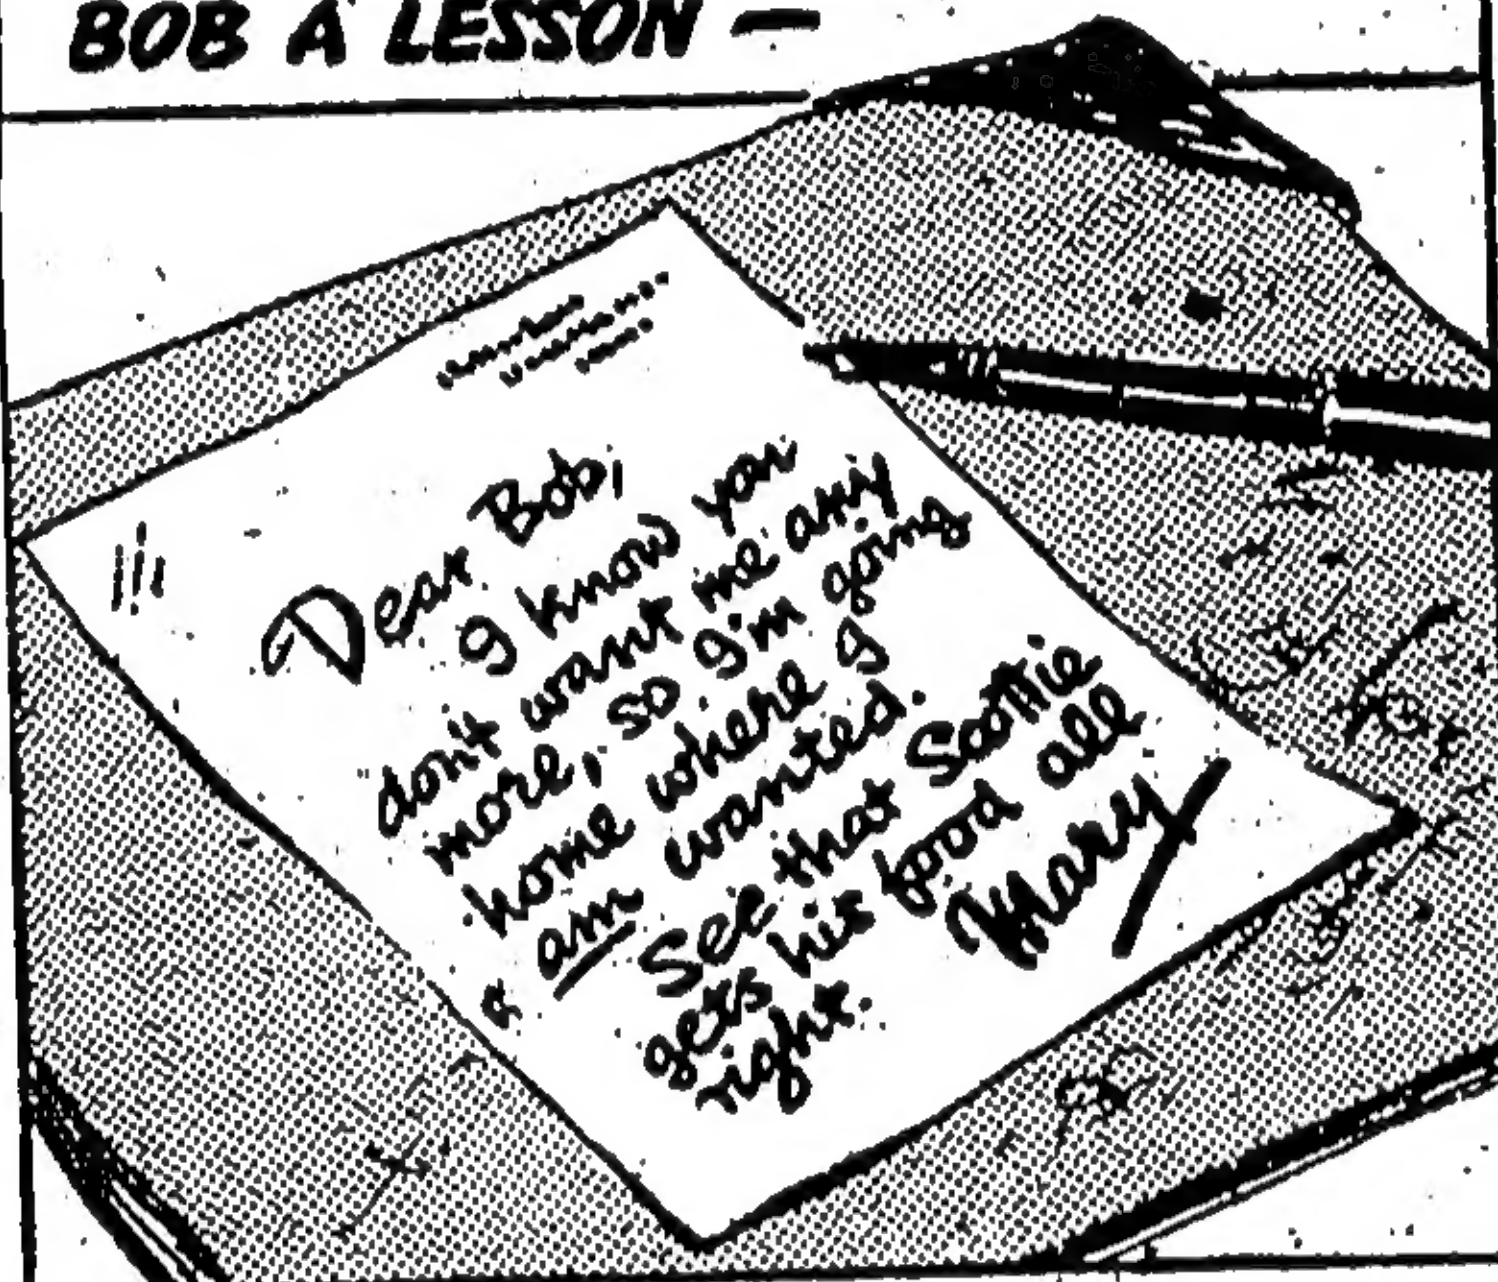 BOB A LESSON —
Dear Bob,
I know you
don't want me any
more, so I'm going
home where I
am wanted.
See that Scottie
gets his food all
right.
Mary